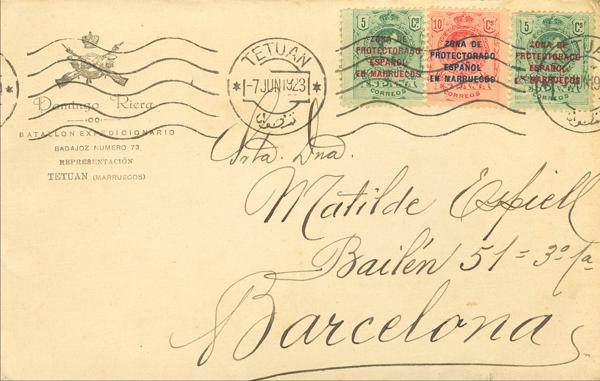 Domingo Riera
BATALLON EXPEDICIONARIO
BADAJOZ NUMERO 73
REPRESENTACIÓN
TETUAN (MARRUECOS)
TETUAN
-7 JUN 1923
تطوان
5 Cs
ZONA DE
PROTECTORADO
ESPAÑOL
EN MARRUECOS
CORREOS
10 Cs
ZONA DE
PROTECTORADO
ESPAÑOL
EN MARRUECOS
CORREOS
5 Cs
ZONA DE
PROTECTORADO
ESPAÑOL
EN MARRUECOS
CORREOS
TETUAN
Srta. Dna.
Matilde Espiell
Bailén 51=3º 1ª
Barcelona